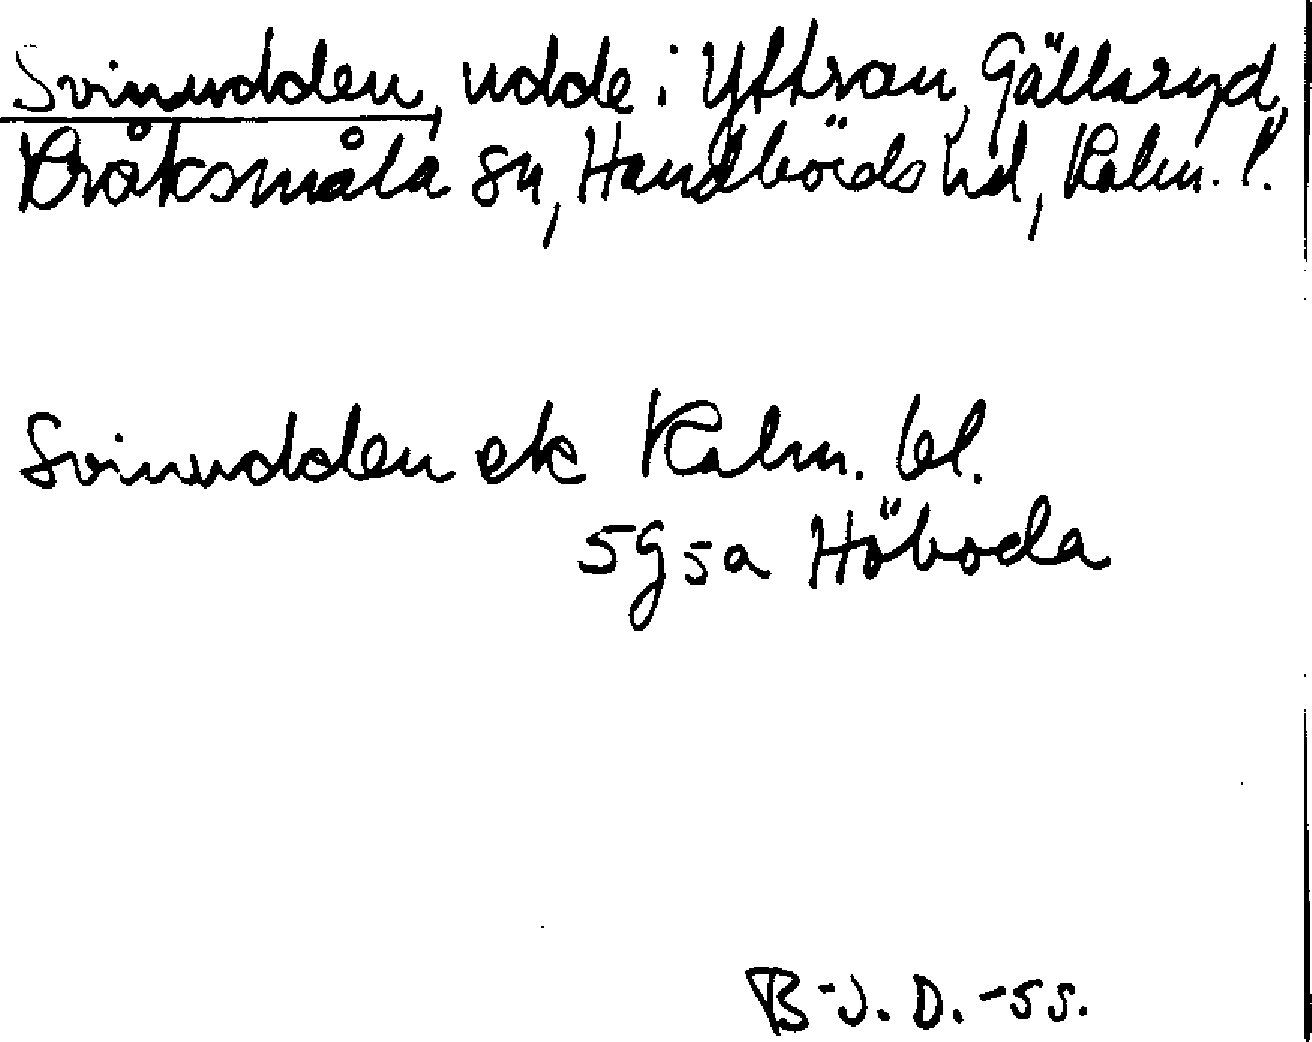 Svinudden, udde i Yttran, Gällsryd,
Kråksmåla sn, Handbörds hd, Kalm. l.
Svinudden ek Kalm. bl.
5g5a Höboda
B-J. D. -55.